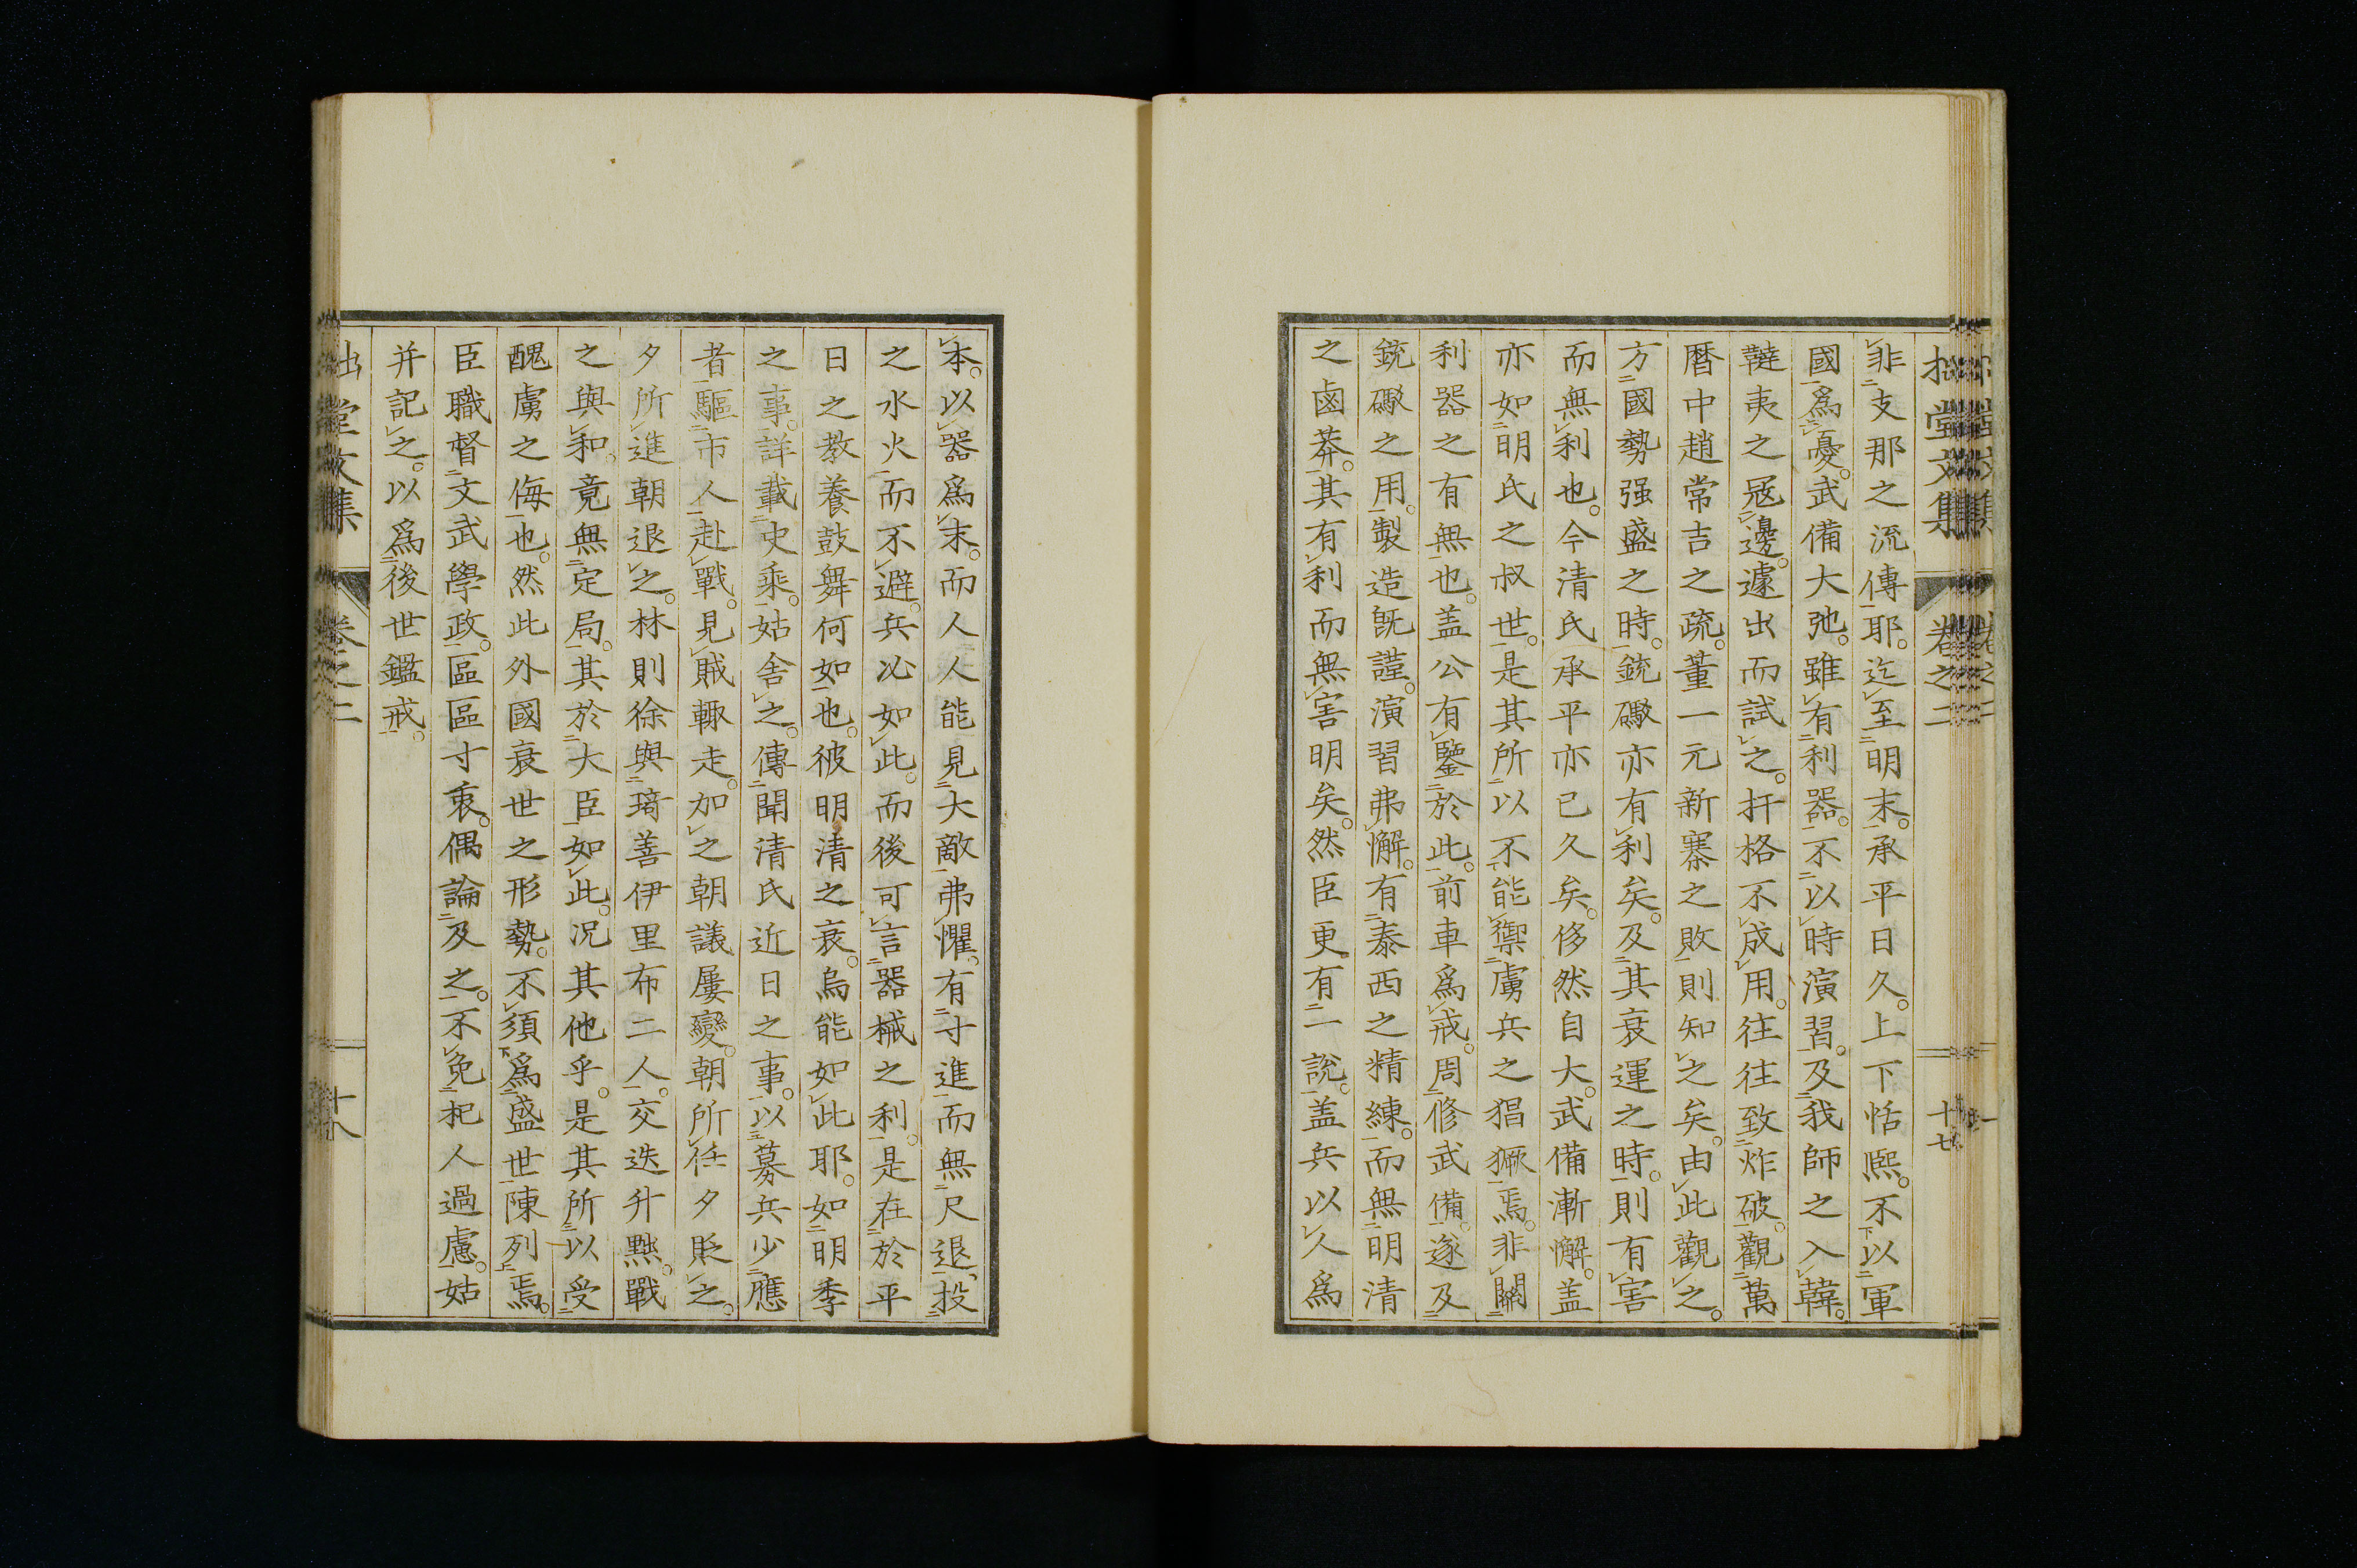 拙堂文集 卷之二 十七
非支那之流傳耶。迄至明末。承平日久。上下恬熙。不以軍
國爲憂。武備大弛。雖有利器。不以時演習。及我師之入韓。
韃夷之冦邊。遽出而試之。扞格不成用。往往致炸破。觀萬
曆中趙常吉之疏。董一元新寨之敗。則知之矣。由此觀之。
方國勢强盛之時。銃礮亦有利矣。及其衰運之時。則有害
而無利也。今清氏承平亦已久矣。侈然自大。武備漸懈。盖
亦如明氏之叔世。是其所以不能禦虜兵之猖獗焉。非關
利器之有無也。盖公有鑒於此。前車爲戒。周修武備。遂及
銃礮之用。製造旣謹。演習弗懈。有泰西之精練。而無明清
之鹵莽。其有利而無害明矣。然臣更有一說。盖兵以人爲
本。以器爲末。而人人能見大敵弗懼。有寸進而無尺退、投
之水火而不避。兵必如此。而後可言器械之利。是在於平
日之教養鼓舞何如也。彼明清之衰。烏能如此耶。如明季
之事。詳載史乘。姑舍之。傳聞清氏近日之事。以募兵少應
者驅市人赴戰。見賊輙走。加之朝議屢變。朝所任夕貶之。
夕所進朝退之。林則徐與琦善伊里布二人。交迭升黜。戰
之與和。竟無定局。其於大臣如此。况其他乎。是其所以受
醜虜之侮也。然此外國衰世之形勢。不須爲盛世陳列焉。
臣職督文武學政。區區寸衷。偶論及之。不免杞人過慮。姑
并記之。以爲後世鑑戒。
堂文集 卷之二 十八